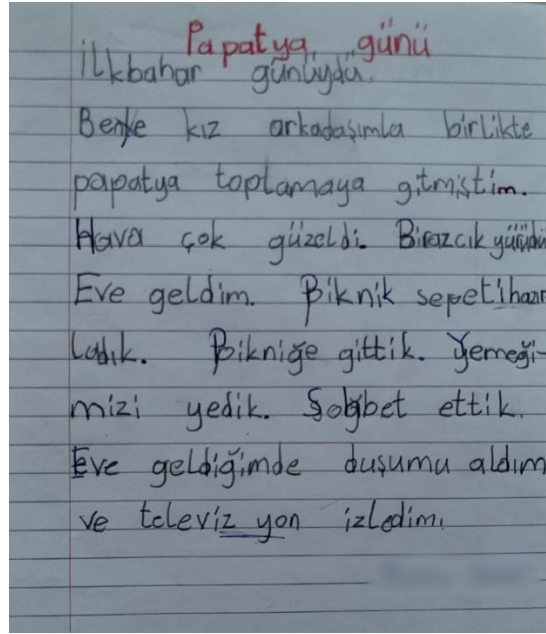 Papatya günü
İlkbahar günüydü.
Benle kız arkadaşımla birlikte
papatya toplamaya gitmiştim.
Hava çok güzeldi. Birazcık yürüdü
Eve geldim. Biknik sepeti hazır
ladık. Bikniğe gittik. Yemeği-
mizi yedik. Sohbet ettik.
Eve geldiğimde duşumu aldım
ve televiz yon izledim.